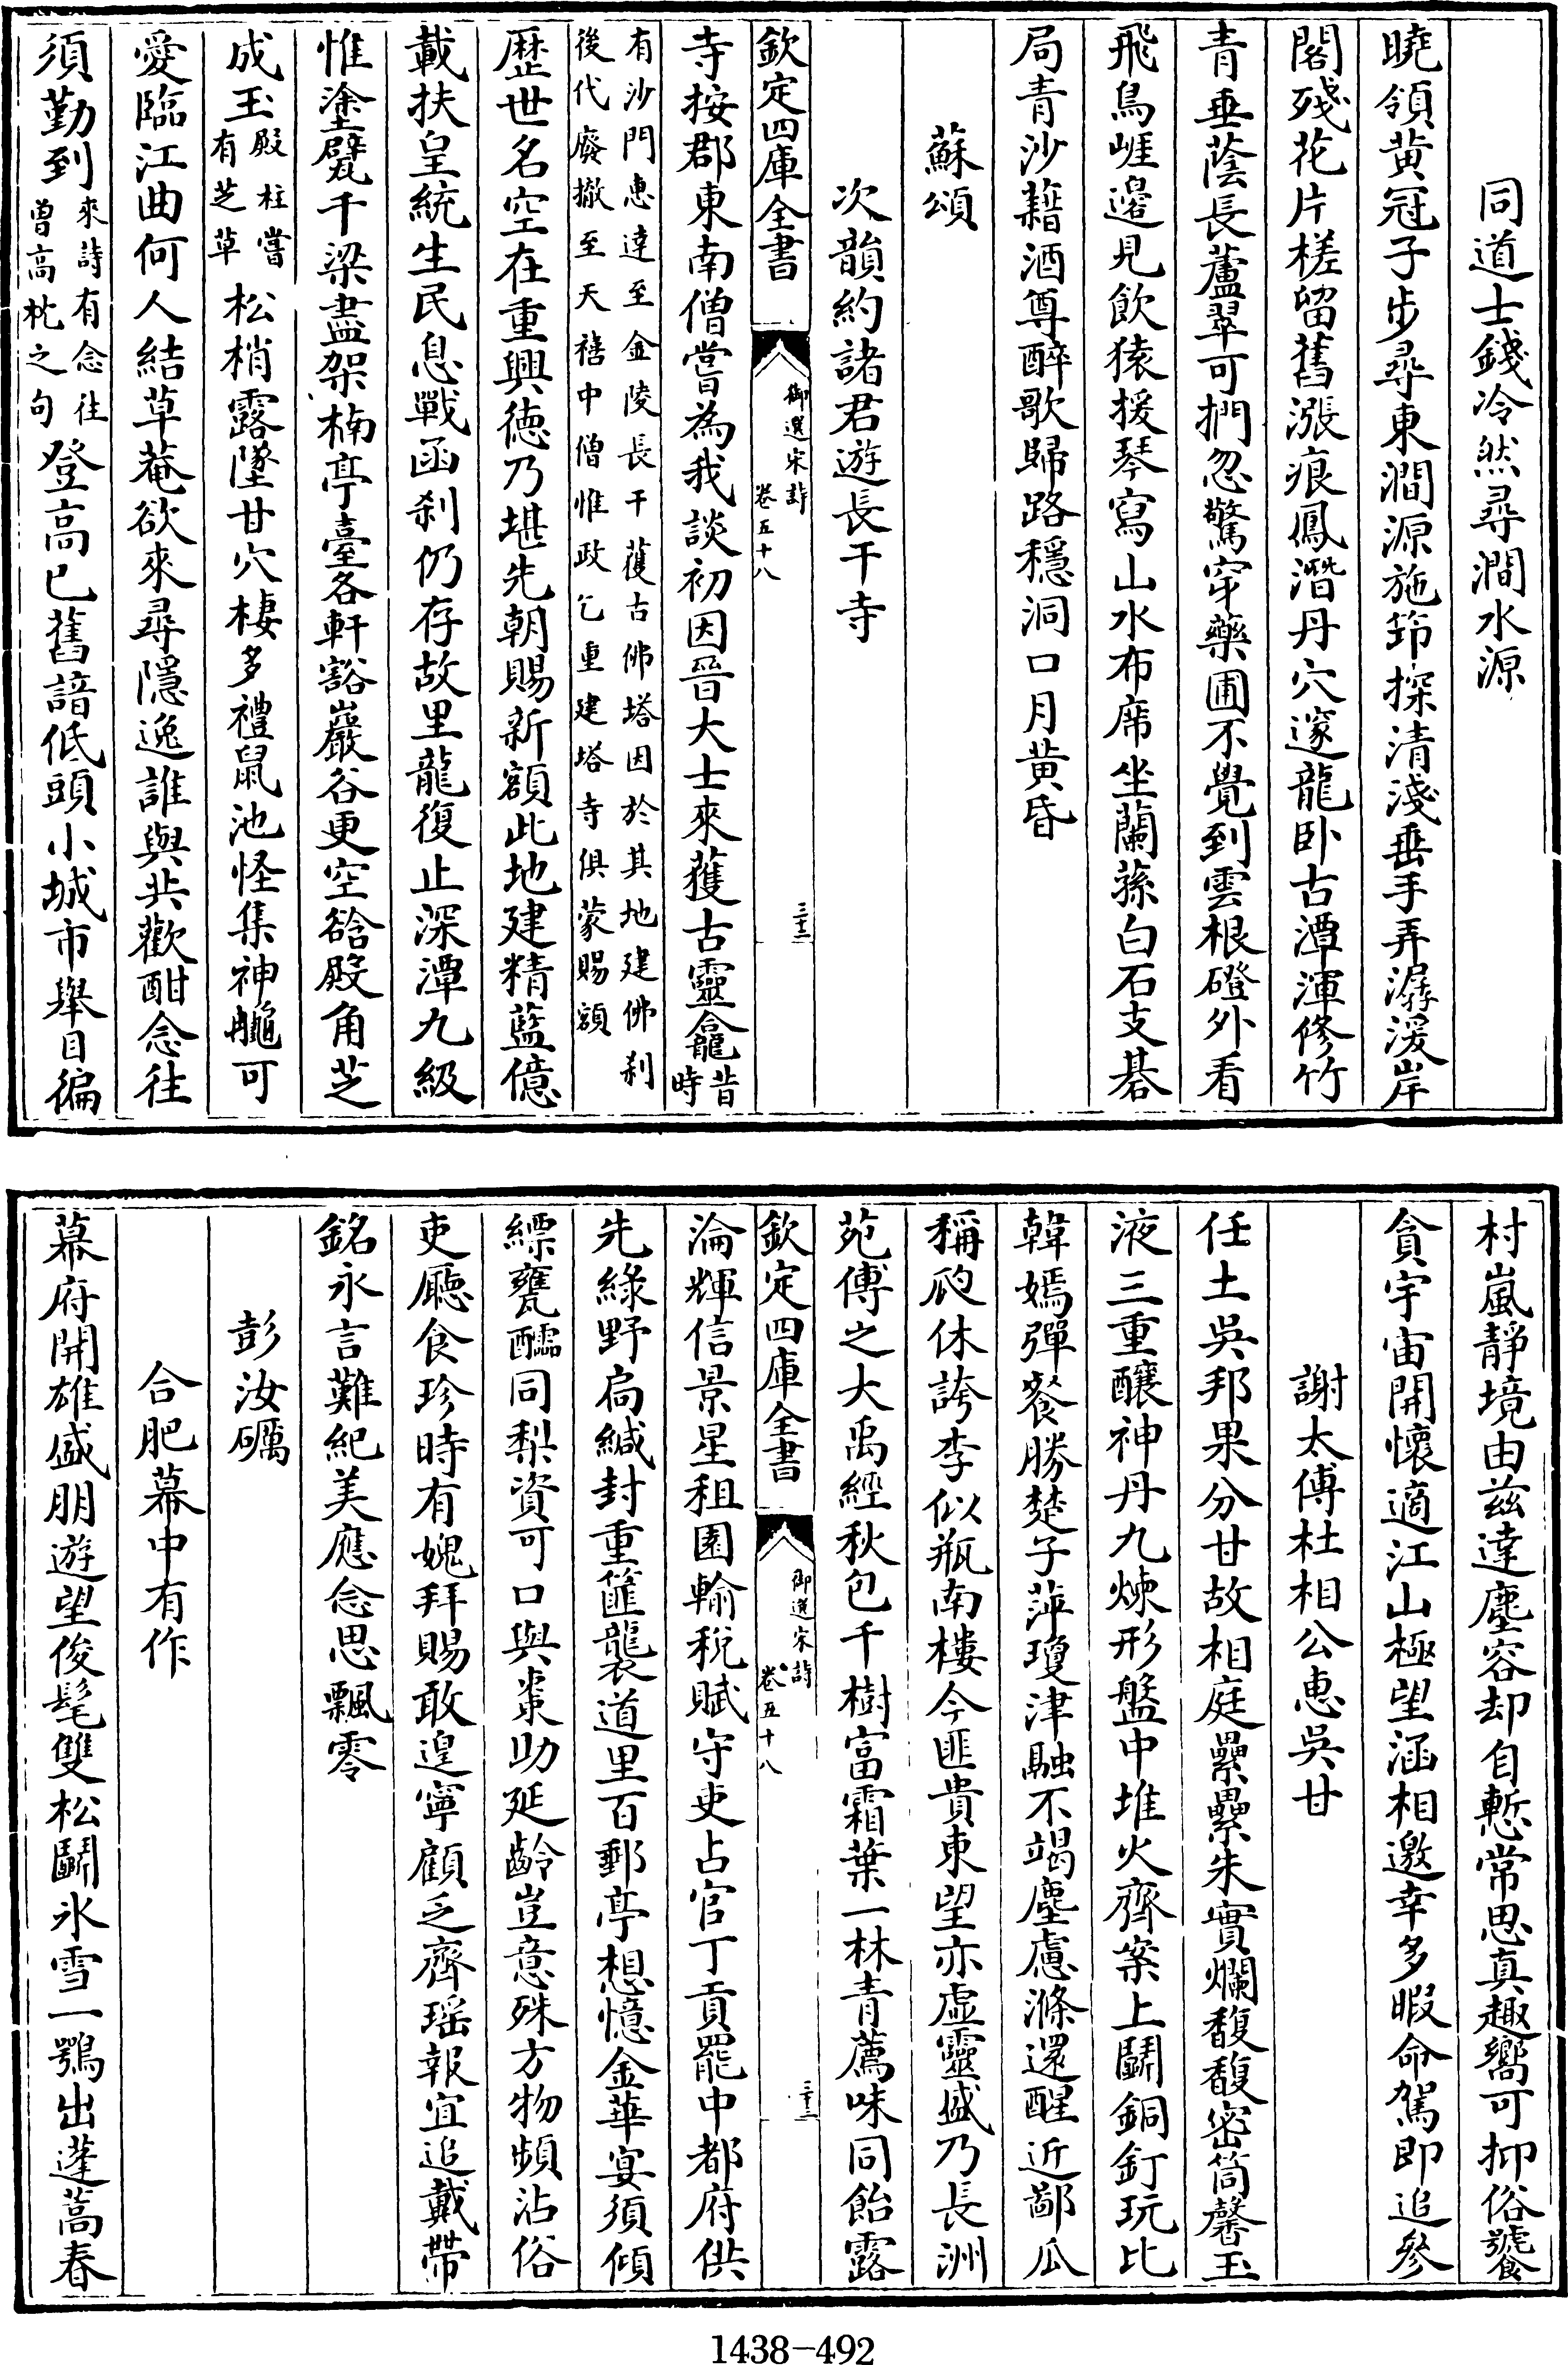 同道士錢冷然尋澗水源
曉領黄冠子步尋東澗源施筇探清淺垂手弄潺湲岸
閣殘花片槎留舊漲痕鳳潛丹穴邃龍卧古潭渾修竹
青垂蔭長蘆翠可捫忽驚穿藥圃不覺到雲根磴外看
飛鳥崕邉見飲猿援琴寫山水布席坐蘭蓀白石支碁
局青沙藉酒尊醉歌歸路穩洞口月黄昏
蘇頌
次韻約諸君遊長干寺
欽定四庫全書
御選宋詩
卷五十八
三十二
寺按郡東南僧嘗為我談初因晉大士來獲古靈龕昔時
有沙門惠達至金陵長干獲古佛塔因於其地建佛剎
後代廢撤至天禧中僧惟政乞重建塔寺俱蒙賜額
歴世名空在重興徳乃堪先朝賜新額此地建精藍億
載扶皇統生民息戰函刹仍存故里龍復止深潭九級
惟塗甓千梁盡架楠亭臺各軒豁巖谷更空谽殿角芝
成玉殿柱嘗有芝草松梢露墜甘穴棲多禮鼠池怪集神䰾可
愛臨江曲何人結草菴欲來尋隱逸誰與共歡酣念往
須勤到來詩有念往曽高枕之句登高已舊諳低頭小城市舉目徧
村嵐靜境由兹達塵容却自慙常思真趣嚮可抑俗饕
貪宇宙開懷適江山極望涵相邀幸多暇命駕即追參
謝太傅杜相公惠吳甘
任土吳邦果分甘故相庭纍纍朱實爛馥馥密筒馨玉
液三重釀神丹九煉形盤中堆火齊案上鬭銅釘玩比
韓嫣彈餐勝楚子萍瓊津融不竭塵慮滌還醒近鄙瓜
稱瓝休誇李似瓶南樓今匪貴東望亦虚靈盛乃長洲
苑傅之大禹經秋包千樹富霜葉一林青薦味同飴露
欽定四庫全書
御選宋詩
卷五十八
三十三
淪輝信景星租園輸稅賦守吏占官丁貢罷中都府供
先綠野扃緘封重篚襲道里百郵亭想憶金華宴須傾
縹甕醽同梨資可口與棗助延齡豈意殊方物頻沾俗
吏廳食珍時有媿拜賜敢遑寧顧乏齊瑶報宜追戴帶
銘永言難紀美應念思飄零
彭汝礪
合肥幕中有作
幕府開雄盛朋遊望俊髦雙松鬭氷雪一鶚出蓬蒿春
1438-492